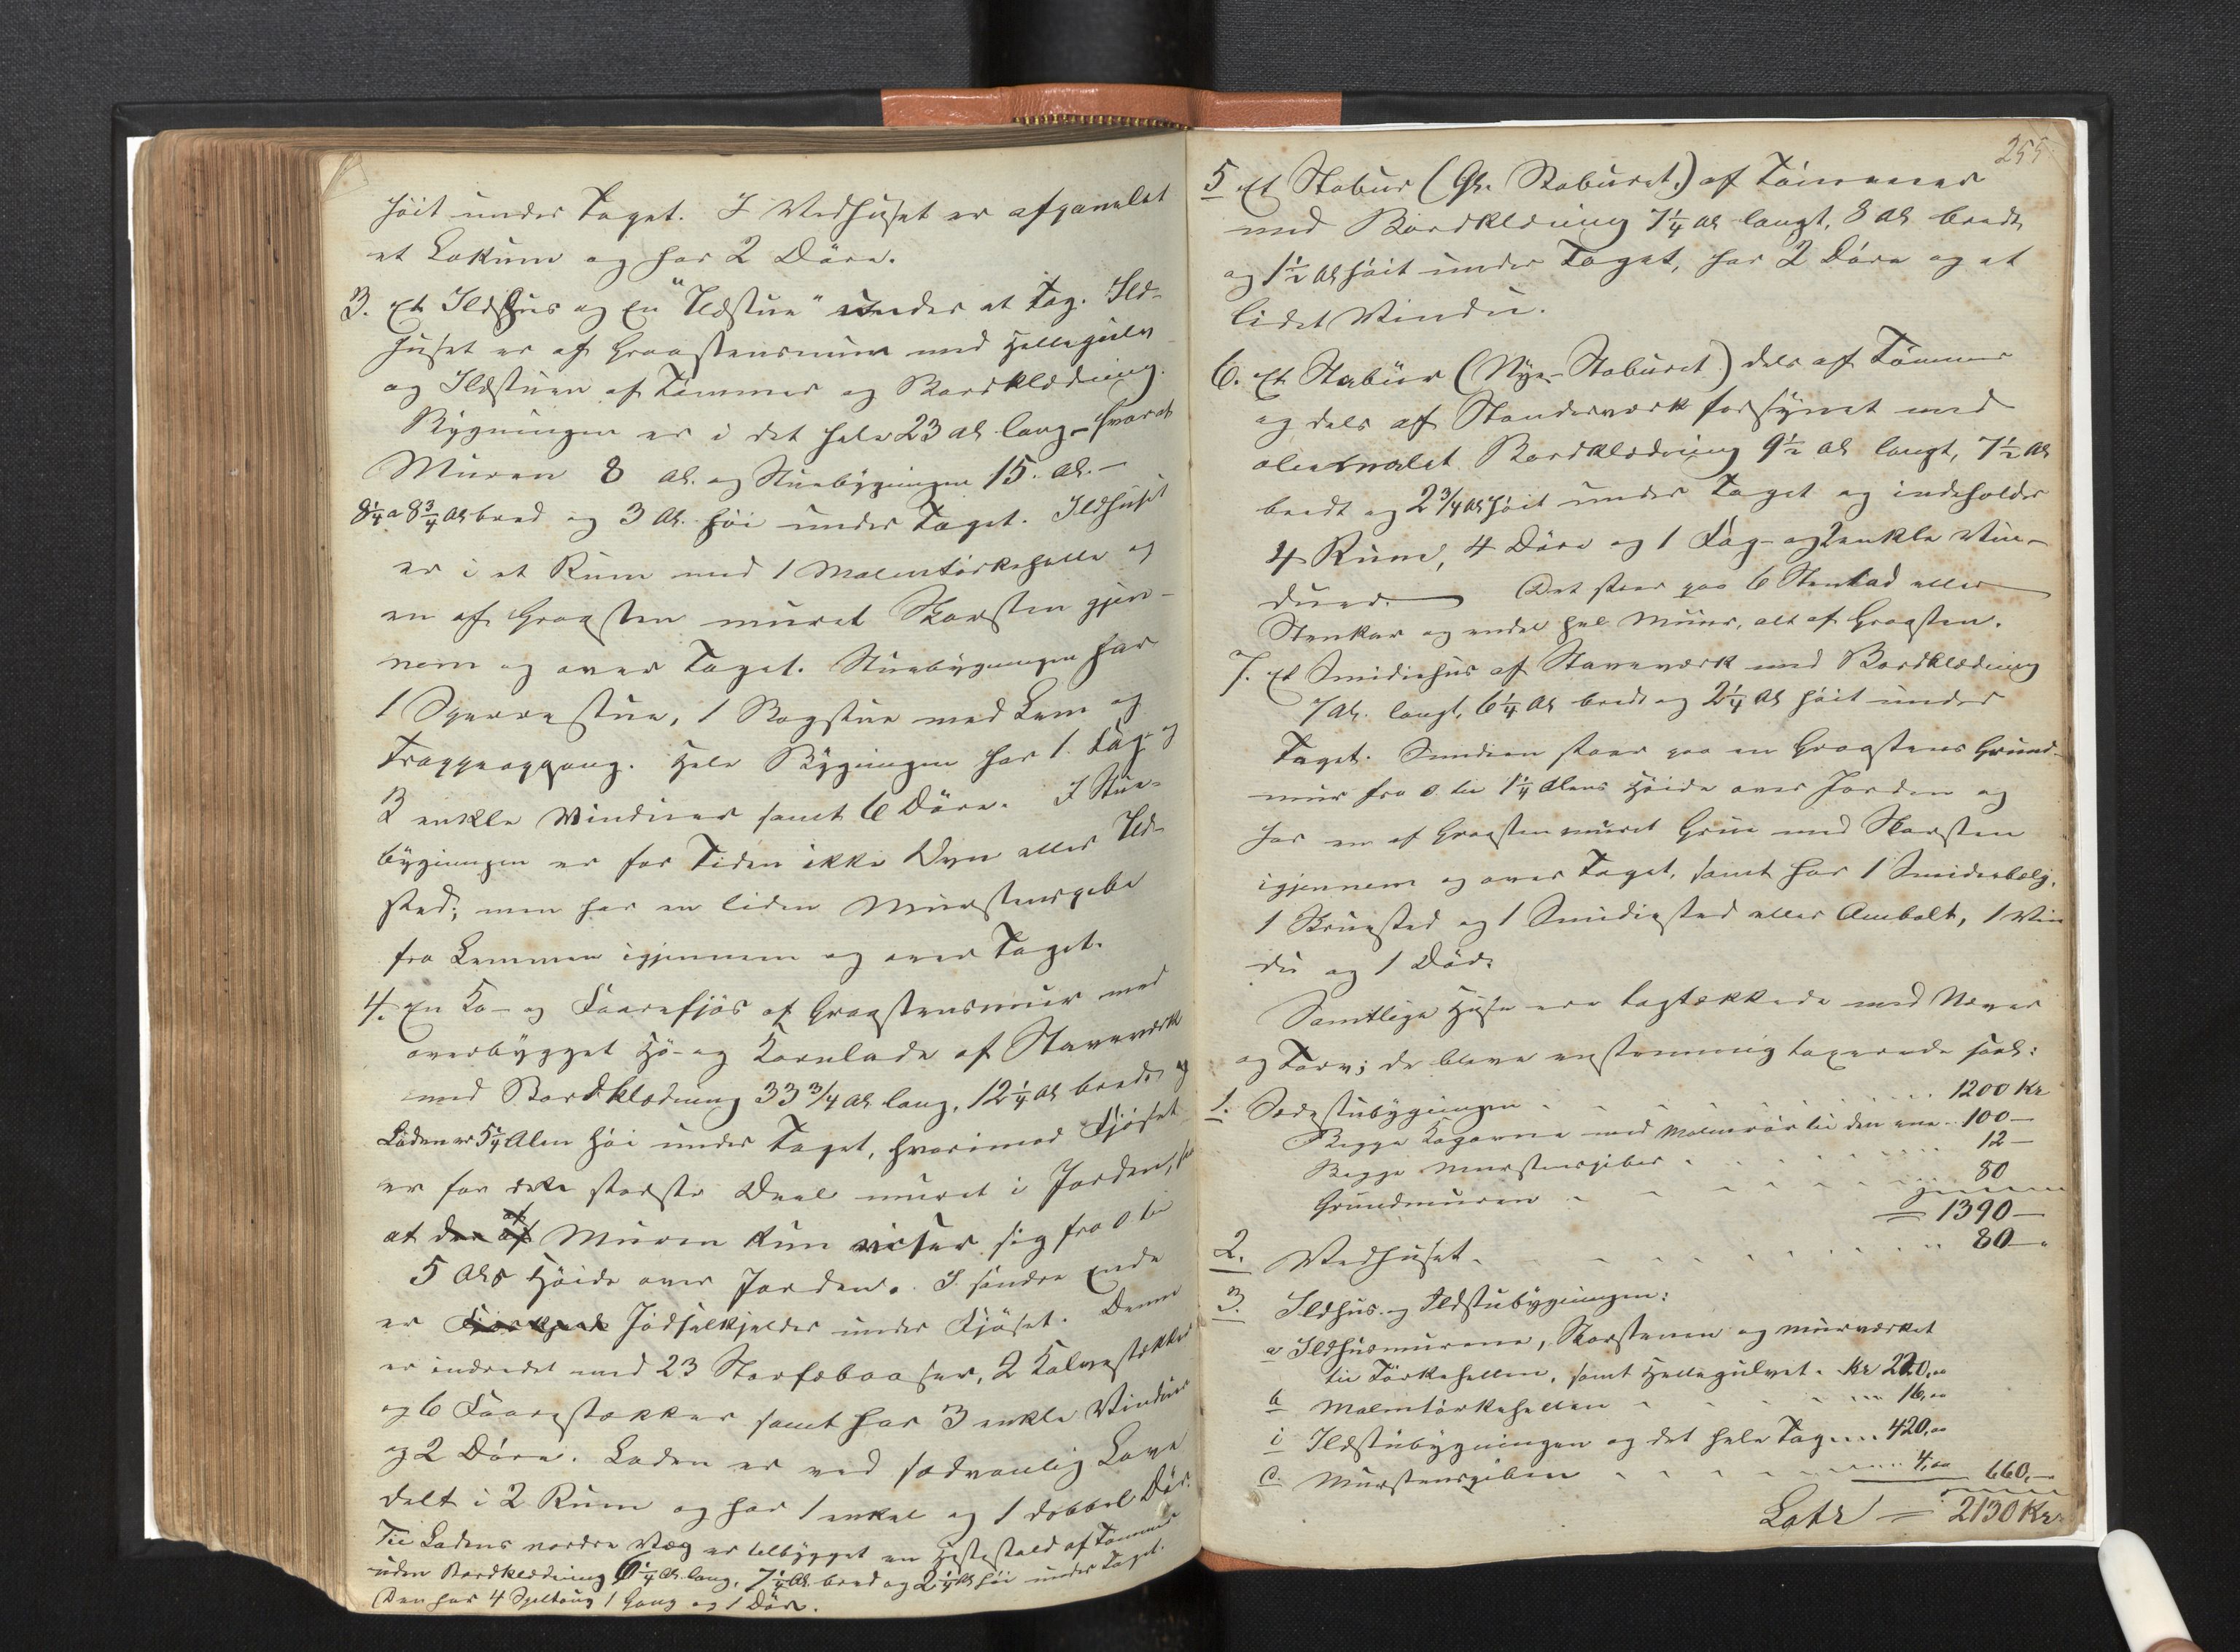 höit under Taget. I Vedhuset er afpanelet
et Lokum og har 2 Döre.
3. Et Ildhus og en "Ildstue" under et Tag. Ild-
huset er af Graastensmur med Hellegulv
og Ildstuen af Tømmer og Bordklædning.
Bygningen er i det hele 23 Al. lang - hvoraf
Muren 8 Al. og Stuebygningen 15. Al. -
8¼ a 8¾ Al bred og 3 Al. höi under Taget. Ildhuset
er i et Rum med 1 Malmtörkehelle og
en af Graasten muret Skorsten gjen-
nem og over Taget. Stuebygningen har
1 Sperrestue, 1 Bogstue med Lem og
Trappeopgang. Hele Bygningen har 1 Fag- og
2 enkle Vinduer samt 6 Döre. I Stue-
bygningen er for Tiden ikke Ovn eller Ild-
sted; men har en liden Murstenspibe
fra Lemmen igjennem og over Taget.
4. En Ko- og Faarefjös af Graastensmur med
overbygget Hö- og Kornlade af Staveværk
med Bordklædning 33¾ Al lang, 12¼ Al bred og
Laden er 5¼ Alen höi under Taget, hvorimod Fjöset
er for det störste Deel muret i Jorden, saa
at den af Muren kun viser sig fra 0 til
5 Als Höide over Jorden. I söndre Ende
er Jödselkjelder under Fjöset. Denne
er indredet med 23 Storfæbaaser, 2 Kalvestækker
og 6 Faarestækker samt har 3 enkle Vinduer
og 2 Döre. Laden er ved sædvanlig Lave
delt i 2 Rum og har 1 enkel og 1 dobbel Dör.
Til Ladens nordre Væg er tilbygget en Hestestald af Tømmer
uden Bordklædning 6¼ Al. lang, 7¼ Al. bred og 2¼ Al höi under Taget.
Den har 4 Spiltaug 1 Gang og 1 Dör.
255
5 Et Stabur (Gl. Staburet.) af Tömmer
med Bordklædning 7¼ Al langt, 8 Al bredt
og 1½ Al höit under Taget, har 2 Döre og et
lidet Vindu.
6. Et Stabur (Nye-Staburet) dels af Tömmer
og dels af Standerværk forsynet med
oliemalet Bordklædning 9½ Al langt, 7½ Al
bredt og 2¾ Al höit under Taget og indeholder
4 Rum, 4 Döre og 1 Fag- og 2 enkle Vin-
duer. Det staar paa 6 Stenlad eller
Stenkar og endel hel Muur, alt af Graasten.
7. Et Smidiehus af Staveværk med Bordklædning
7 Al. langt, 6¼ Al bredt og 2¼ Al höit under
Taget. Smidien staar paa en Graastens Grund-
mur fra 0 til 1¼ Alens Höide over Jorden og
har en af Graasten muret Grue med Skorsten
igjennem og over Taget, samt har 1 Smidebælg,
1 Skruested og 1 Smidiested eller Ambolt, 1 Vin
du og 1 Dör.
Samtlige Huse ere tagtækkede med Næver
og Torv; de bleve enstemmig taxerede saal:
1. Sædestubygningen . . . . . . 1200 Kr
Begge Kogovne med Malmrör til den ene . . 100 —
Begge Murstenspiber . . . . . 12 —
Grundmuren . . . . . . 80
= 1390 —
2. Vedhuset . . . . . . . 80 —
3. Ildhus- og Ildstubygningen:
a Ildhusmurene, Skorstenen og Murværket
til Törkehellen, samt Hellegulvet. Kr 220,00
b Malmtörkehellen . . . . . 16,00
c Ildstubygningen og det hele Tag . . 420,00
d. Murstenspiben . . . . . 4,00 660, —
Latr = 2130 Kr.